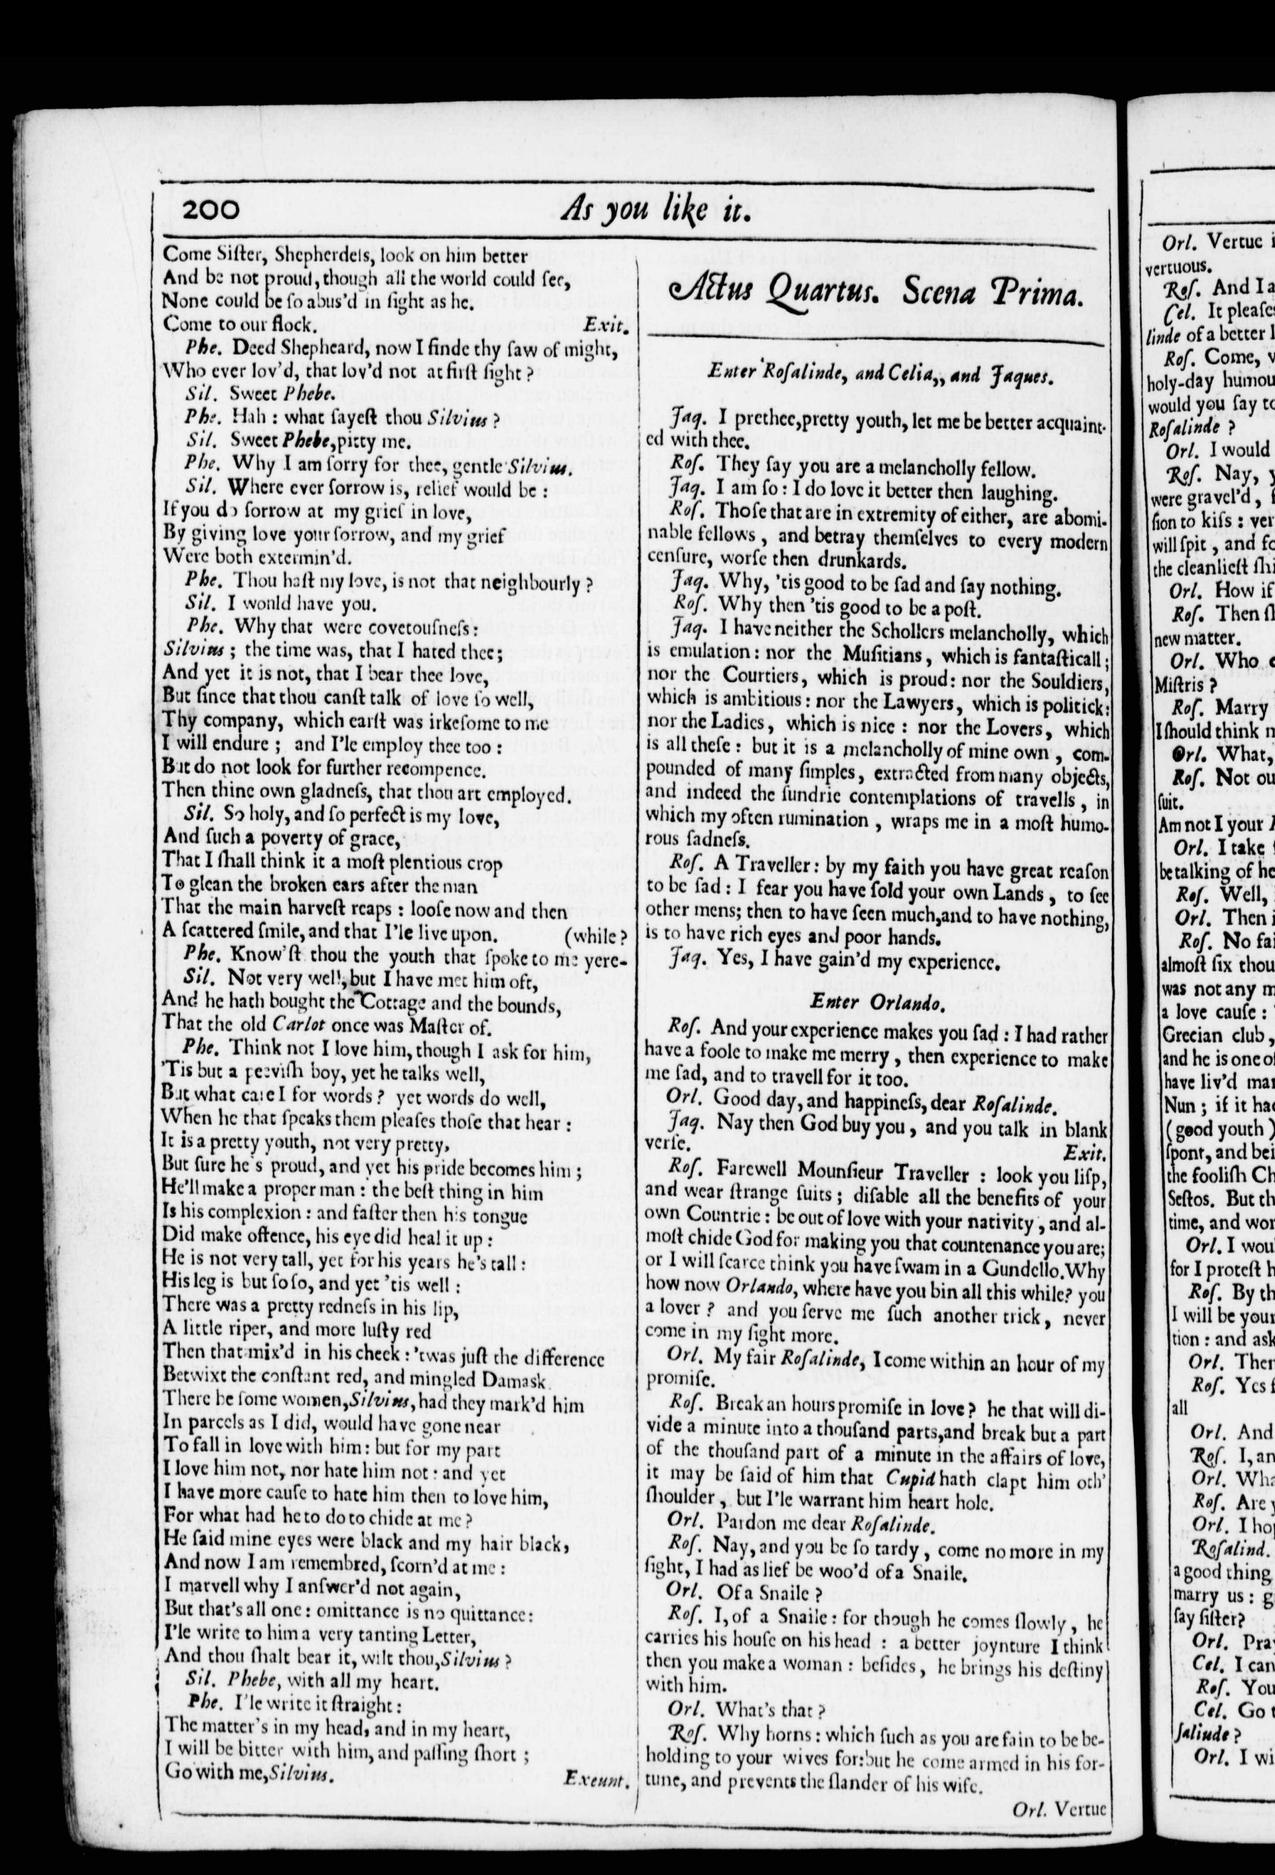 200
As you like it.
Come Siſter, Shepherdeſs, look on him better
And be not proud, though all the world could ſee,
None could be ſo abus'd in ſight as he.
Come to our flock. Exit.
Phe. Deed Shepheard, now I finde thy ſaw of might,
Who ever lov'd, that lov'd not at firſt ſight?
Sil. Sweet Phebe.
Phe. Hah: what ſayeſt thou Silvius?
Sil. Sweet Phebe, pitty me.
Phe. Why I am ſorry for thee, gentle Silvius.
Sil. Where ever ſorrow is, relief would be:
If you do ſorrow at my grief in love,
By giving love your ſorrow, and my grief
Were both extermin'd.
Phe. Thou haſt my love, is not that neighbourly?
Sil. I would have you.
Phe. Why that were covetouſneſs:
Silvius; the time was, that I hated thee;
And yet it is not, that I bear thee love,
But ſince that thou canſt talk of love ſo well,
Thy company, which earſt was irkeſome to me
I will endure; and I'le employ thee too:
But do not look for further recompence.
Then thine own gladneſs, that thou art employed.
Sil. So holy, and ſo perfect is my love,
And ſuch a poverty of grace,
That I ſhall think it a moſt plentious crop
To glean the broken ears after the man
That the main harveſt reaps: looſe now and then
A ſcattered ſmile, and that I'le live upon. (while?
Phe. Know'ſt thou the youth that ſpoke to me yere-
Sil. Not very well, but I have met him oft,
And he hath bought the Cottage and the bounds,
That the old Carlot once was Maſter of.
Phe. Think not I love him, though I ask for him,
'Tis but a peeviſh boy, yet he talks well,
But what care I for words? yet words do well,
When he that ſpeaks them pleaſes thoſe that hear:
It is a pretty youth, not very pretty,
But ſure he's proud, and yet his pride becomes him;
He'll make a proper man: the beſt thing in him
Is his complexion: and faſter then his tongue
Did make offence, his eye did heal it up:
He is not very tall, yet for his years he's tall:
His leg is but ſo ſo, and yet 'tis well:
There was a pretty redneſs in his lip,
A little riper, and more luſty red
Then that mix'd in his cheek: 'twas juſt the difference
Betwixt the conſtant red, and mingled Damask.
There be ſome women, Silvius, had they mark'd him
In parcels as I did, would have gone near
To fall in love with him: but for my part
I love him not, nor hate him not: and yet
I have more cauſe to hate him then to love him,
For what had he to do to chide at me?
He ſaid mine eyes were black and my hair black,
And now I am remembred, ſcorn'd at me:
I marvell why I anſwer'd not again,
But that's all one: omittance is no quittance:
I'le write to him a very tanting Letter,
And thou ſhalt bear it, wilt thou, Silvius?
Sil. Phebe, with all my heart.
Phe. I'le write it ſtraight:
The matter's in my head, and in my heart,
I will be bitter with him, and paſſing ſhort;
Go with me, Silvius. Exeunt.
Actus Quartus. Scena Prima.
Enter Roſalinde, and Celia,, and Jaques.
Jaq. I prethee, pretty youth, let me be better acquaint-
ed with thee.
Roſ. They ſay you are a melancholly fellow.
Jaq. I am ſo: I do love it better then laughing.
Roſ. Thoſe that are in extremity of either, are abomi-
nable fellows, and betray themſelves to every modern
cenſure, worſe then drunkards.
Jaq. Why, 'tis good to be ſad and ſay nothing.
Roſ. Why then 'tis good to be a poſt.
Jaq. I have neither the Schollers melancholly, which
is emulation: nor the Muſitians, which is fantaſticall;
nor the Courtiers, which is proud: nor the Souldiers,
which is ambitious: nor the Lawyers, which is politick:
nor the Ladies, which is nice: nor the Lovers, which
is all theſe: but it is a melancholly of mine own, com-
pounded of many ſimples, extracted from many objects,
and indeed the ſundrie contemplations of travells, in
which my often rumination, wraps me in a moſt humo-
rous ſadneſs.
Roſ. A Traveller: by my faith you have great reaſon
to be ſad: I fear you have ſold your own Lands, to ſee
other mens; then to have ſeen much, and to have nothing,
is to have rich eyes and poor hands.
Jaq. Yes, I have gain'd my experience.
Enter Orlando.
Roſ. And your experience makes you ſad: I had rather
have a foole to make me merry, then experience to make
me ſad, and to travell for it too.
Orl. Good day, and happineſs, dear Roſalinde.
Jaq. Nay then God buy you, and you talk in blank
verſe. Exit.
Roſ. Farewell Mounſieur Traveller: look you liſp,
and wear ſtrange ſuits; diſable all the benefits of your
own Countrie: be out of love with your nativity, and al-
moſt chide God for making you that countenance you are;
or I will ſcarce think you have ſwam in a Gundello. Why
how now Orlando, where have you bin all this while? you
a lover? and you ſerve me ſuch another trick, never
come in my ſight more.
Orl. My fair Roſalinde, I come within an hour of my
promiſe.
Roſ. Break an hours promiſe in love? he that will di-
vide a minute into a thouſand parts, and break but a part
of the thouſand part of a minute in the affairs of love,
it may be ſaid of him that Cupid hath clapt him oth'
ſhoulder, but I'le warrant him heart hole.
Orl. Pardon me dear Roſalinde.
Roſ. Nay, and you be ſo tardy, come no more in my
ſight, I had as lief be woo'd of a Snaile.
Orl. Of a Snaile?
Roſ. I, of a Snaile: for though he comes ſlowly, he
carries his houſe on his head: a better joynture I think
then you make a woman: beſides, he brings his deſtiny
with him.
Orl. What's that?
Roſ. Why horns: which ſuch as you are fain to be be-
holding to your wives for: but he come armed in his for-
tune, and prevents the ſlander of his wife.
Orl. Vertue
Orl. Vertue i
vertuous.
Roſ. And I a
Cel. It pleaſe
linde of a better l
Roſ. Come, w
holy-day humou
would you ſay to
Roſalinde?
Orl. I would
Roſ. Nay, y
were gravel'd, ſ
ſion to kiſs: ver
will ſpit, and fo
the cleanlieſt ſhi
Orl. How if
Roſ. Then ſ
new matter.
Orl. Who c
Miſtris?
Roſ. Marry
I ſhould think m
Orl. What,
Roſ. Not ou
ſuit.
Am not I your R
Orl. I take ſ
be talking of he
Roſ. Well,
Orl. Then i
Roſ. No fai
almoſt ſix thou
was not any m
a love cauſe:
Grecian club,
and he is one of
have liv'd man
Nun; if it had
(good youth)
ſpont, and bei
the fooliſh Ch
Seſtos. But th
time, and wor
Orl. I wou
for I proteſt h
Roſ. By th
I will be your
tion: and ask
Orl. Then
Roſ. Yes f
all
Orl. And
Roſ. I, an
Orl. Wha
Roſ. Are y
Orl. I hop
Roſalind.
a good thing
marry us: g
ſay ſiſter?
Orl. Pra
Cel. I can
Roſ. You
Cel. Go t
ſalinde?
Orl. I wi